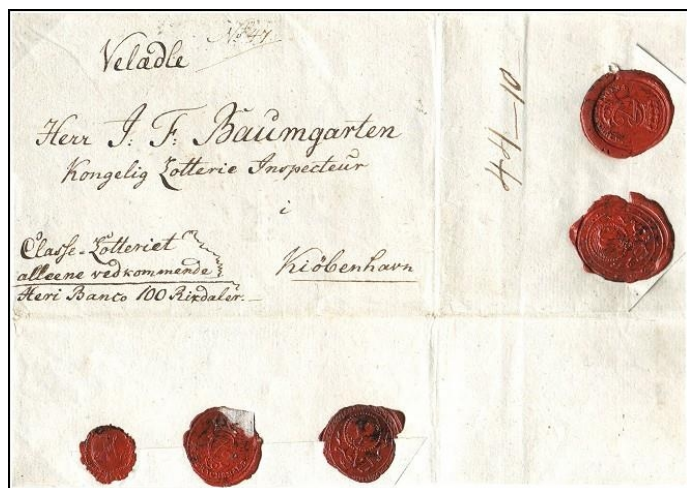 No 47.
Velædle
Herr J: F: Baumgarten
Kongelig Lotterie Inspecteur
i
Classe-Lotteriet
alleene vedkommende
Kiöbenhavn
Heri Banco 100 Rixdaler.
44-10